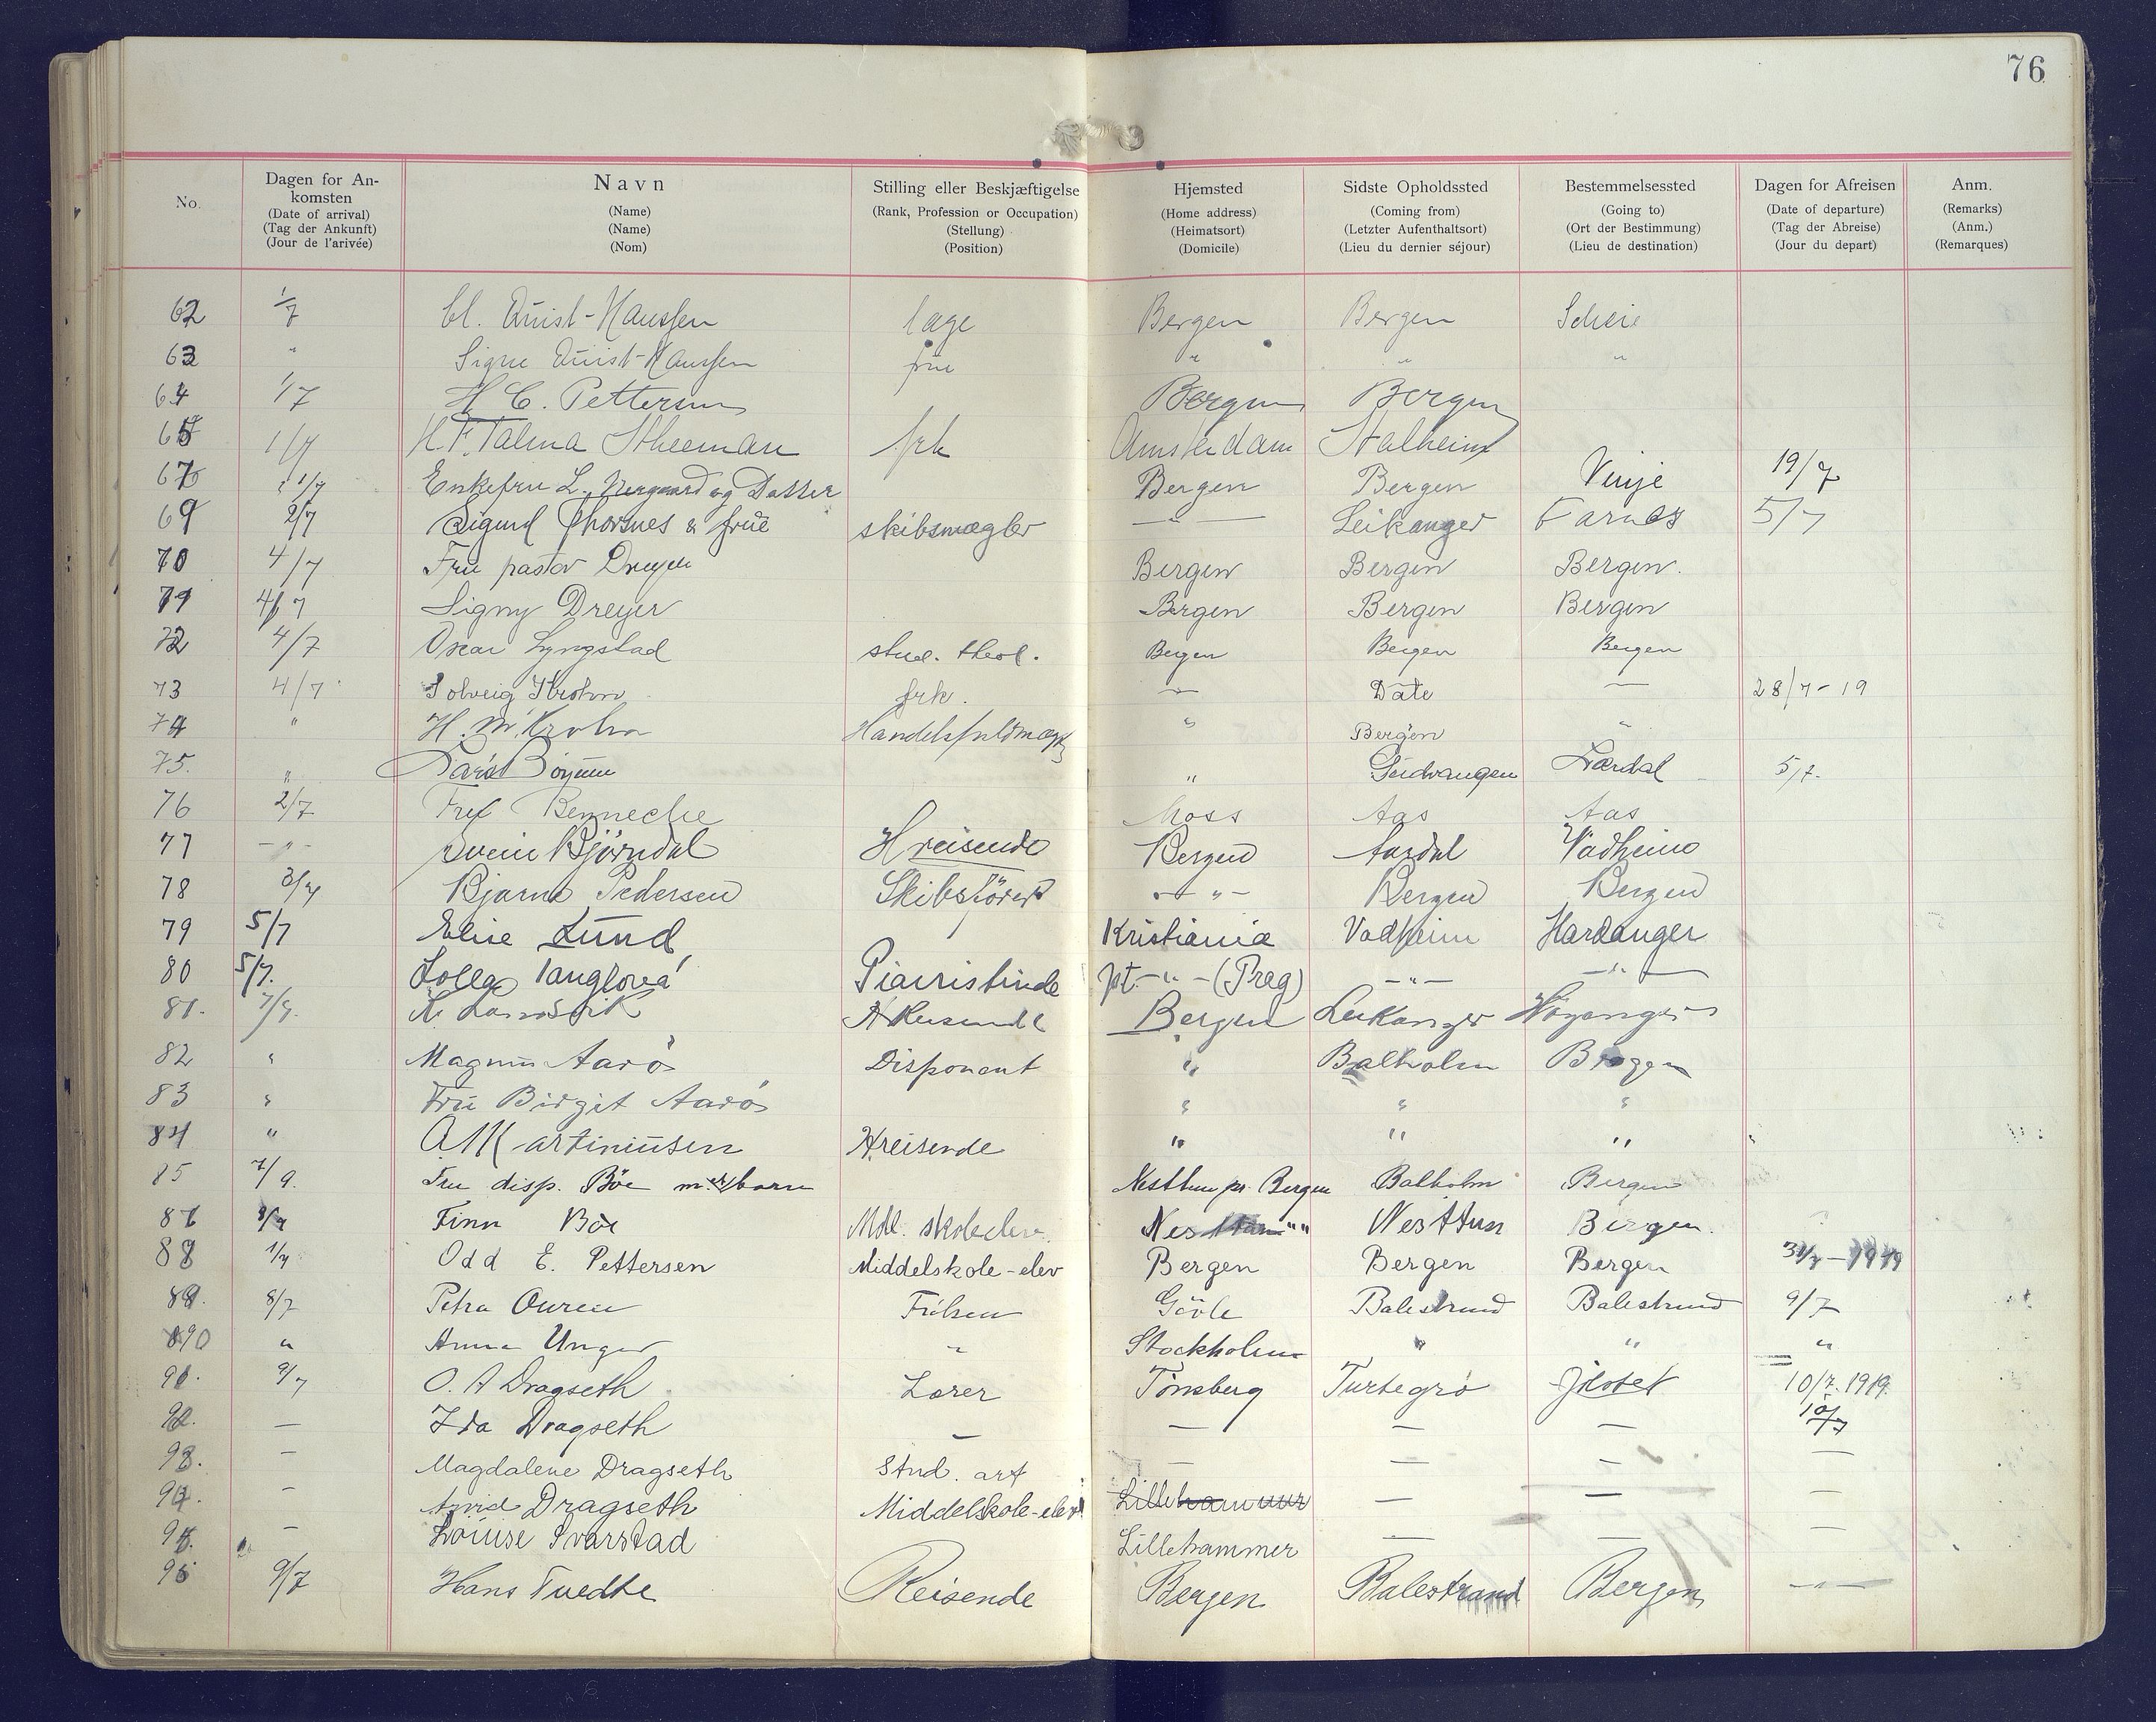 76
No.
Dagen for An-
komsten
(Date of arrival)
(Tag der Ankunft)
(Jour de l'arivée)
Navn
(Name)
(Name)
(Nom)
Stilling eller Beskjæftigelse
(Rank, Profession or Occupation)
(Stellung)
(Position)
Hjemsted
(Home address)
(Heimatsort)
(Domicile)
Sidste Opholdssted
(Coming from)
(Letzter Aufenthaltsort)
(Lieu du dernier séjour)
Bestemmelsessted
(Going to)
(Ort der Bestimmung)
(Lieu de destination)
Dagen for Afreisen
(Date of departure)
(Tag der Abreise)
(Jour du depart)
Anm.
(Remarks)
(Anm.)
(Remarques)
62 1/7 Cl. Quist-Hanssen læge Bergen Bergen
63 " Signe Quist-Hanssen frue " " "
64 1/7 H C. Pettersen Bergen Bergen
65 1/7 H.F. Talma Stheeman frk Amsterdam Stalheim
67 1/7 Enkefru L. Nergaard og Datter Bergen Bergen Vinje 19/7
69 2/7 Sigurd Thorsnes & frue skibsmægler — " — Leikanger Farnes 5/7
70 4/7 Fru pastor Dreyer Bergen Bergen Bergen.
71 4/7 Signy Dreyer Bergen Bergen Bergen
72 4/7 Oscar Lyngstad stud. theol. Bergen Bergen Bergen
73 4/7 Solveig Krohn frk. — Dale — 28/7-19
74 " H. M. Krohn " Bergen "
75. " Lars Böyum " Gudvangen Lærdal 5/7.
76 2/7 Benneche Moss Aas Aas
77 - " - Svein Björndal H reisende Bergen Aardal Vadheim
78 3/7 Bjarne Pedersen Skibsförer - " - Bergen Bergen
79 5/7 Elise Lund Kristiania Vadheim Hardanger
80 5/7. Pianistinde pt. - " - (Prag) - " - - " -
81. 7/7. H Reisende Bergen Leikanger Höyanger
82 " Magnus Aarö Disponent " Balholm Bergen
83 " Fru Birgit Aarö " " "
84 " A Martiniusen H reisende " " "
85 Fru disp. Böe m. barn Nesttun pr. Bergen Balholm Bergen
Finn Böe Mdl. skoleelev Nesttun Bergen.
88 1/7 Odd E. Pettersen Middelskole-elev Bergen Bergen Bergen 31/7 - 1919
89. 8/7 Petra Ouren Fröken Gävle Balestrand Balestrand 9/7
90 " Anna Unger " Stockholm " " "
91. 9/7 O. A Dragseth Lærer Tönsberg Turtegrö 10/7. 1919.
92. — Ida Dragseth — — — — 10/7
93. — Magdalene Dragseth Stud. art — — — —
94. — Arvid Dragseth Middelskole-elev Lillehammer — — —
95. — Louise Svarstad Lillehammer — — —
96 9/7 Hans Tvedte Reisende Bergen Balestrand Bergen — " —